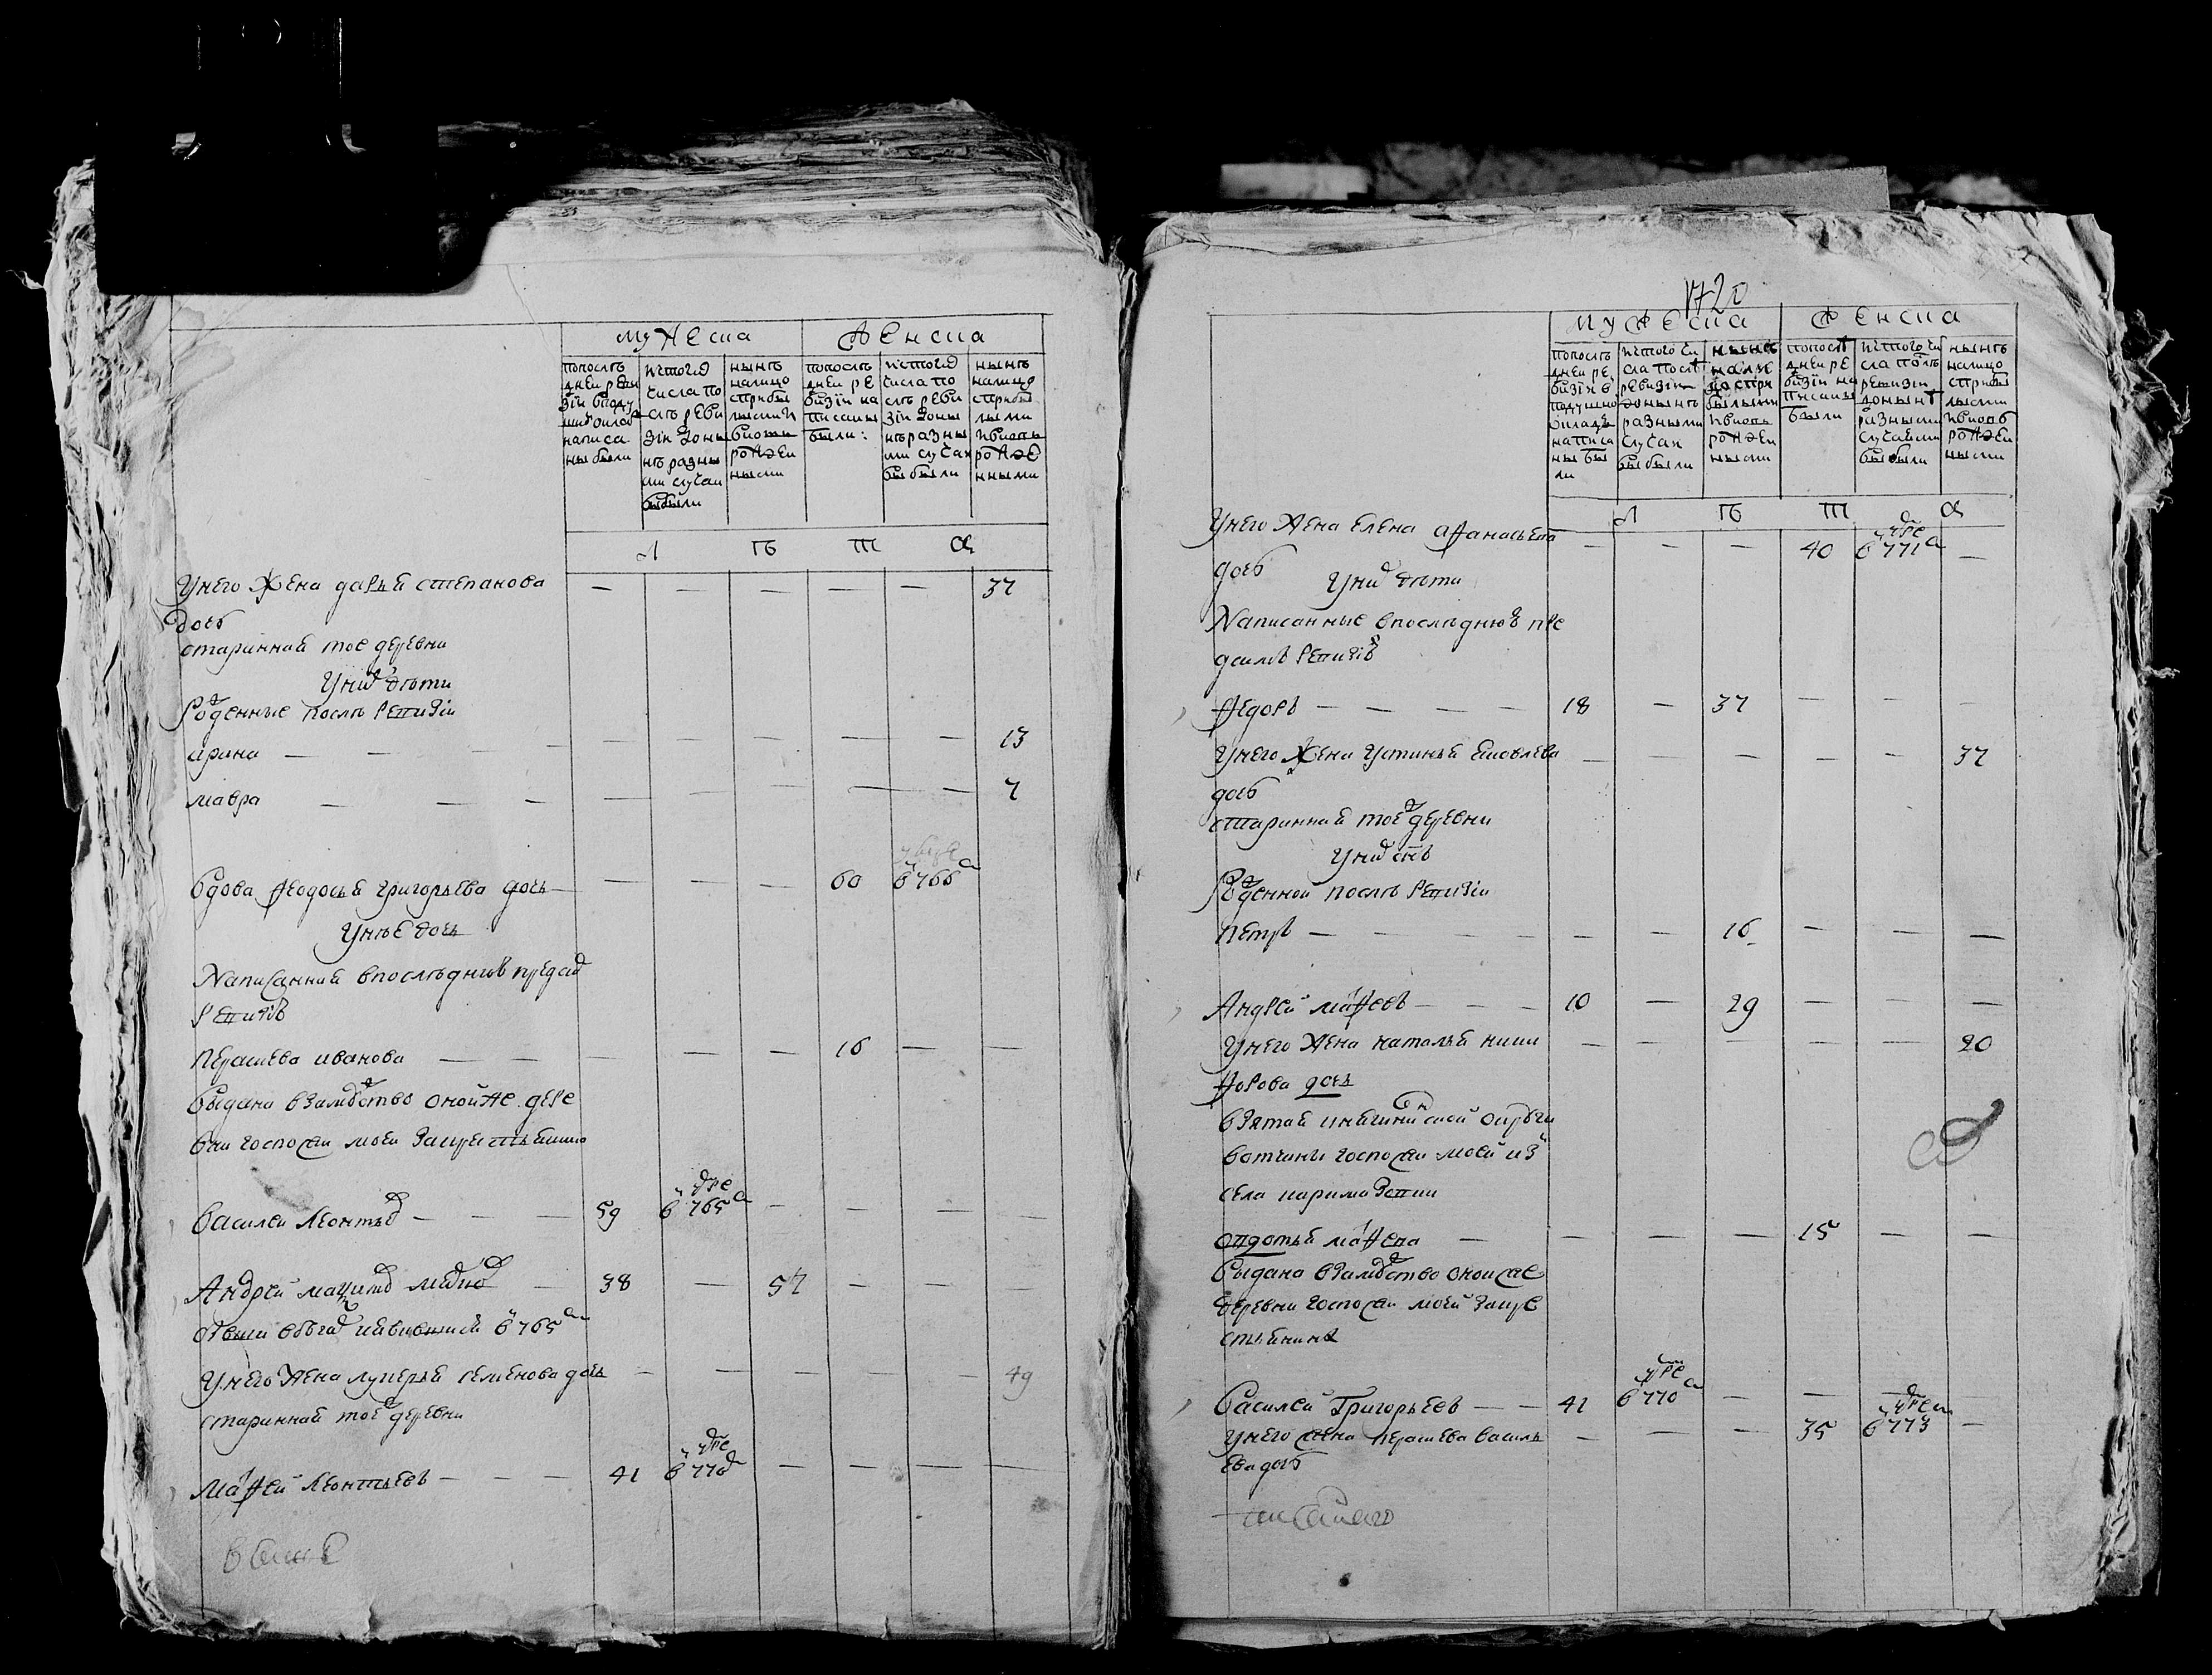 мужеска
женска
попослѣ
дней реви
зiи вподу
шной оклад
написа
ны были
исътого
числа по
слѣ реви
зiи доны
нѣ разны
ми случаи
выбыли
нынѣ
налицо
сприбы
лыми и
вновь
рожден
ными
попослѣ
дней ре
визiи на
писаны
были:
исътого
числа по
слѣ реви
зiи доны
нѣ разны
ми случаи
выбыли
нынѣ
налицо
сприбы
лыми
ивновь
рожде
нными
л ѣ т а
унего жена дарья степанова — — — — — 37
дочь
старинная тое деревни
уних дѣти
рожденные послѣ ревизiи
арина — — — — — — — 13
мавра — — — — — — — 7
вдова федосья григорьева дочь — — — 60 в 766 —
унее дочь
написанная впослѣднюю пред сей
ревизiю
парасковья иванова — — — — 16 — —
выдана взамужство оной же дере
вни господи моей закрестьянина
василей леонтьев — — — 59 в 765 — — — —
умре
андрей — 38 — 57 — — —
в 765
унего жена лукерья семенова дочь — — — — — 49
старинная тое деревни
матфей леонтьевъ — — — 41 в 770 — — — —
умре
1720
мужеска
женска
попослѣ
дней ре
визiи в
подушно
окладѣ
написа
ны бы
ли
исътого чи
сла послѣ
ревизiи
донынѣ
разными
случаи
выбыли
нынѣ
нали
цо спри
былыми
ивновь
рожден
ными
попослѣ
дней ре
визiи на
писаны
были
исътого чи
сла послѣ
ревизiи
донынѣ
разными
случаями
выбыли
нынѣ
налицо
сприбы
лыми
ивновь
рожден
ными
л ѣ т а
унего жена елена афанасьева — — — 40 в 771 —
умре
дочь
уних дѣти
написанные впослѣднюю пре
дсим ревизiю
федоръ — — — — 18 — 37 — — —
унего жена устинья яковлева — — — — — 37
дочь
старинная тое деревни
уних сынъ
рожденной послѣ ревизiи
петръ — — — — — — 16 — — —
андрей матфеевъ — — — 10 — 29 — — —
унего жена наталья ники — — — — — 20
форова дочь
взятая
вотчины господи моей из
села
овдотья матфеева — — — — 15 — —
выдана взамужство оной же
деревни господи моей закре
стьянина
василей григорьевъ — — 41 в 770 — — — —
умре
унего жена парасковья василь — — — 35 в 773 —
умре
ева дочь